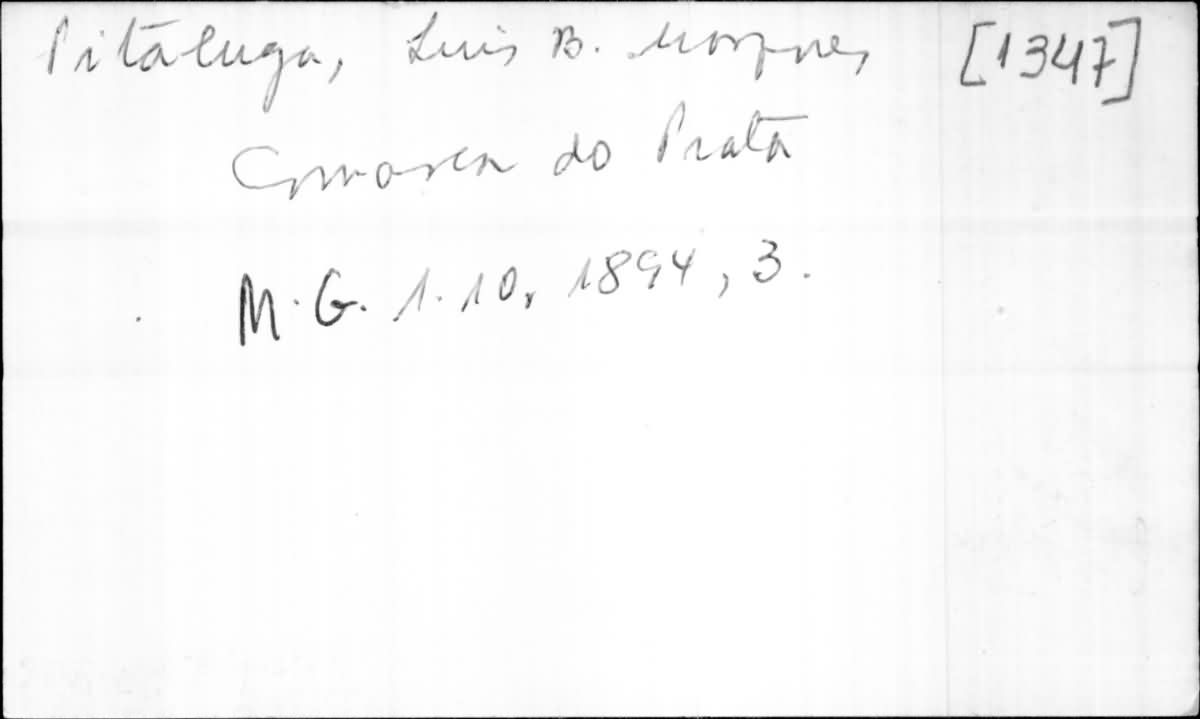 Pitaluga, Luis B. Marques [1347]
Comarca do Prata
M. G. 1.10, 1894, 3.